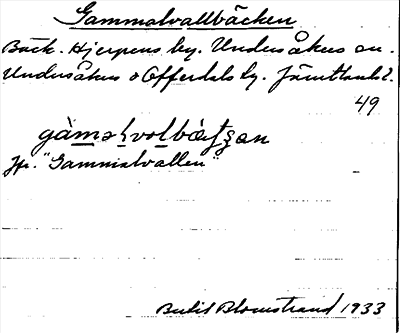 Gammalvallbäcken
Bäck. Hjerpens by. Undersåkers sn.
Undersåkers o Offerdals tg. Jämtlands l.
49
gàmalvolbæ̀tʃan
Jfr. "Gammalvallen"
Blomstrand 1933